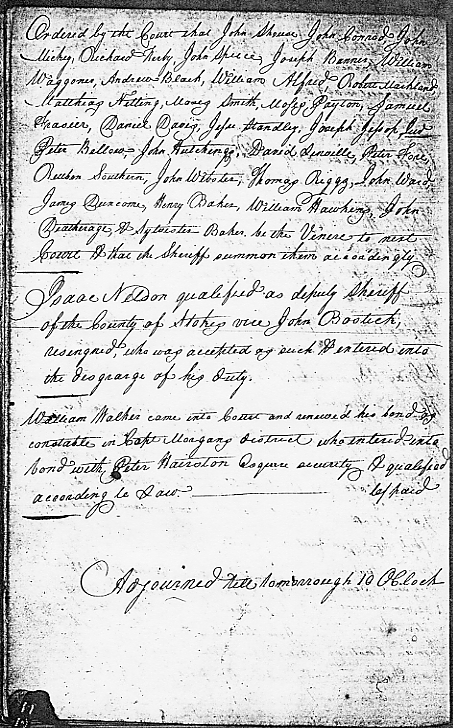 Ordered by the Court that John Shouse, John Conrod, John
Mickey, Richard Kerby, John Spice, Joseph Banner, William
Waggoner, Andrew Beash, William Alfred, Robert Markland
Matthias Nelling, Moses Smith, Mosey Payton, Samuel
Frasier, Daniel Davis, Jesse Standley, Joseph Jessop,
Peter Ballow, John Hutchings, David Linville, Peter Fore,
Reuben Southern, John Webster, Thomas Riggs, John Ward
James Duncome, Henry Baker, William Hawkins, John
Deatherage, & Sylvester Baker be the Venire to next
Court & that the Sheriff summon them accordingly
Isaac Neldon qualified as deputy Sheriff
of the County of Stokes vice John Bostick,
resigned, who was accepted as such & entered into
the disgrarge of his duty.
William Walker came into Court and renewed his bond as
constable in Capt Morgans district who entered into
bond with Peter Hairston Esquire security & qualified
according to Law. paid
Adjourned till tomorrough 10 OClock